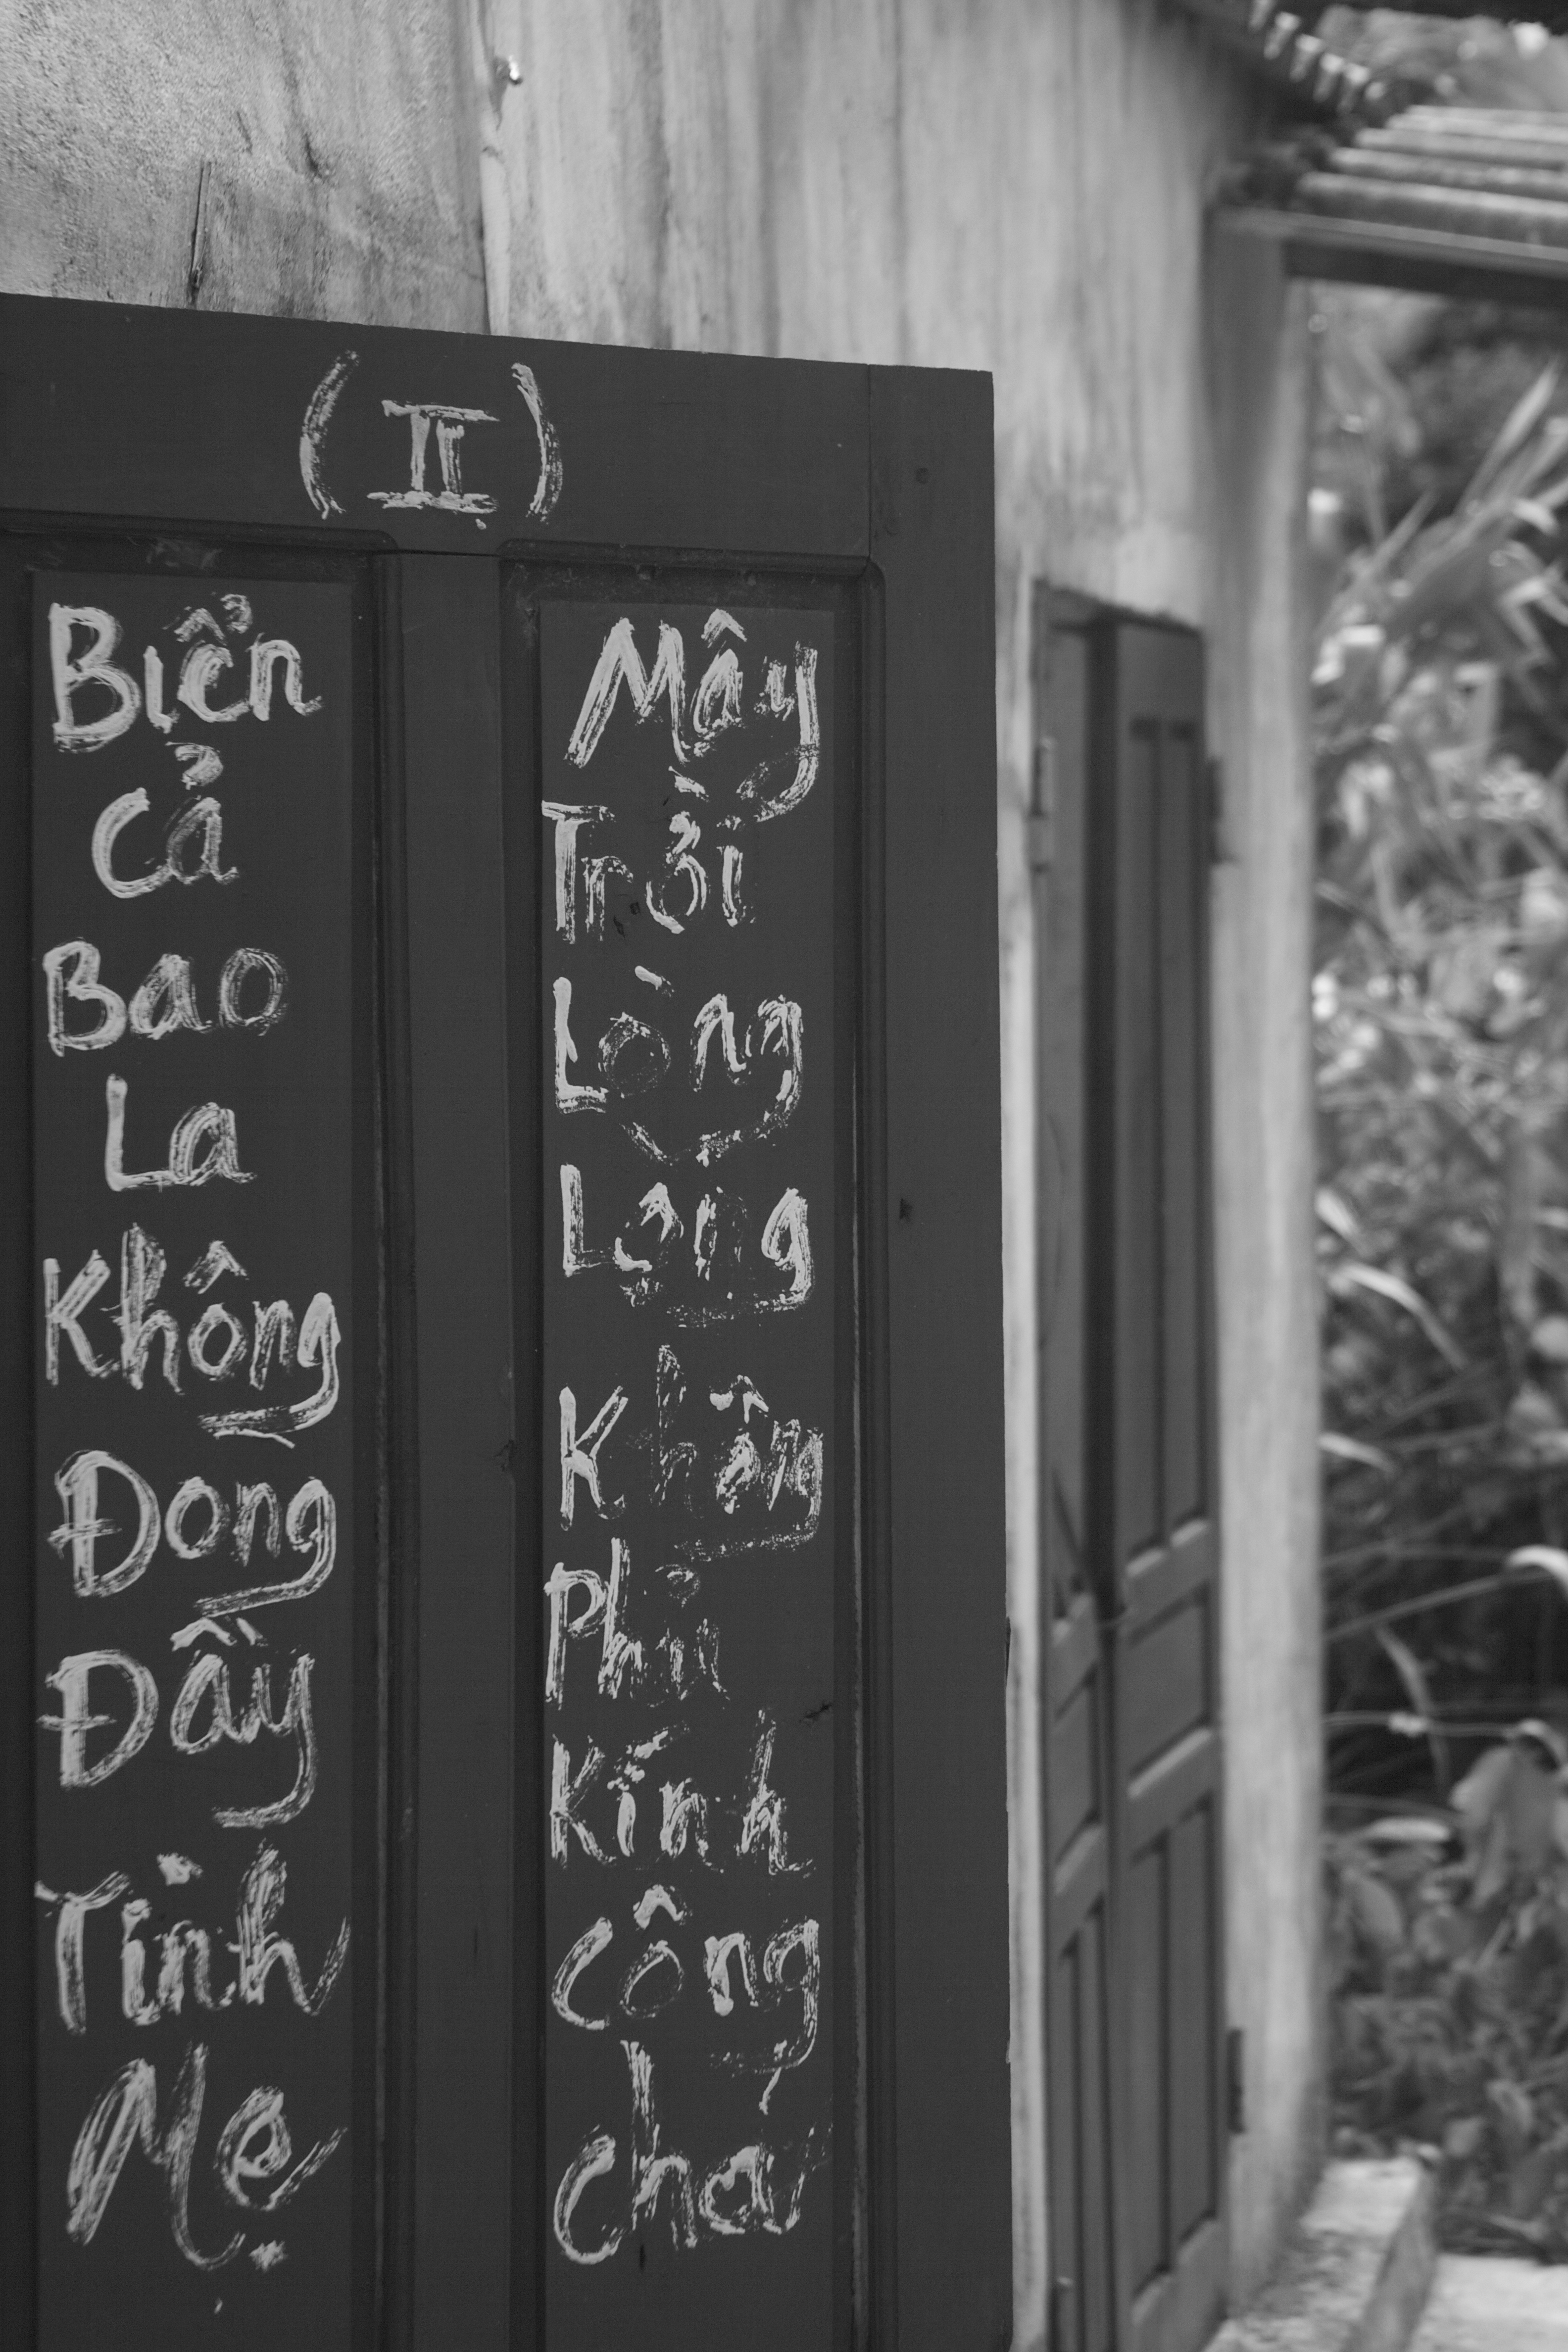 (II)
Biển
Cả
Bao
La
Không
Đong
Đầy
Tình
Mẹ
Mây
Trời
Lòng
Lọng
Không
Phủ
Kính
Công
cha